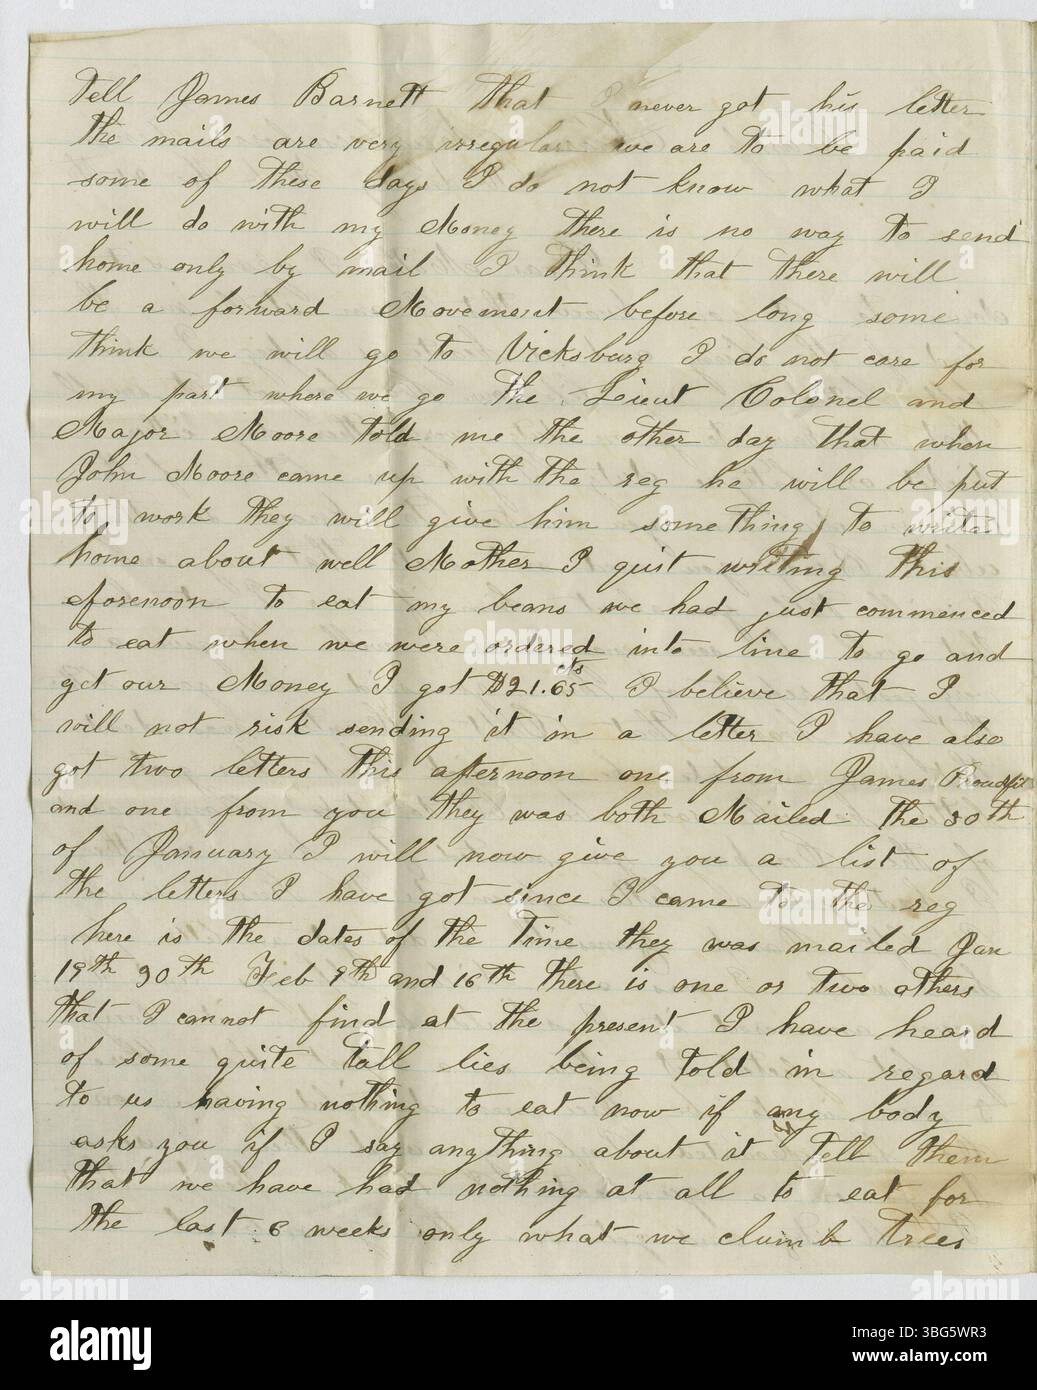 Tell James Barnett that I never got his letter
the mails are very irregular we are to be paid
some of these days I do not know what I
will do with my Money there is no way to send
home only by mail I think that there will
be a forward Movement before long some
think we will go to Vicksburg I do not care for
my part where we go the Lieut Colonel and
Major Moore told me the other day that when
John Moore came up with the reg he will be put
to work they will give him something to write
home about well Mother I quit writing this
forenoon to eat my beans we had just commenced
to eat when we were ordered into line to go and
get our Money I got $21.65 cts I believe that I
will not risk sending it in a letter I have also
got two letters this afternoon one from James Proudfit
and one from you they was both Mailed the 30th
of January I will now give you a list of
the letters I have got since I came to the reg
here is the dates of the Time they was mailed Jan
19th 30th Feb 9th and 16th there is one or two others
that I cannot find at the present I have heard
of some quite tall lies being told in regard
to us having nothing to eat now if any body
asks you if I say anything about it Tell them
that we have had nothing at all to eat for
the last 6 weeks only what we clumb trees
alamy
Image ID: 3BG5WR3
www.alamy.com